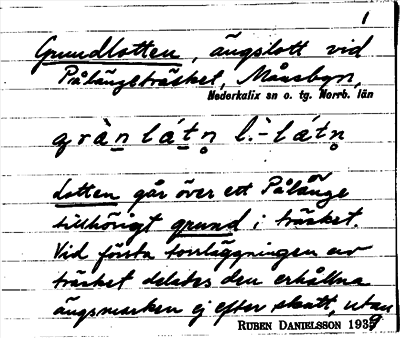 1
Grundlotten, ängslott vid
Pålängeträsket, Månsbyn,
Nederkalix sn o. tg. Norrb. län
lotten går över ett Pålänge
tillhörigt grund i träsket.
Vid första torrläggningen av
träsket delades den erhållna
ängsmarken ej efter skatt, utan
RUBEN DANIELSSON 1939